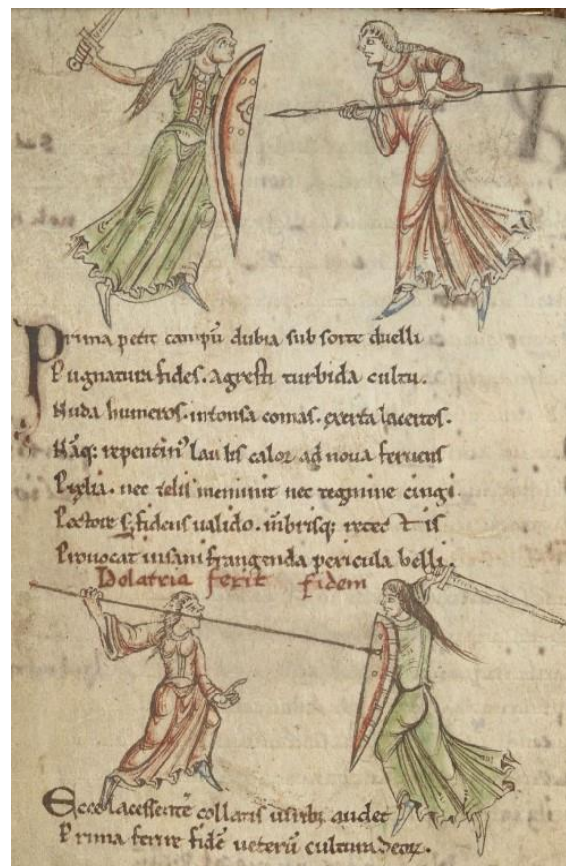 Prima petit campū dubia sub sorte duelli
Pugnatura fides. agresti turbida cultu.
Nuda humeros. intonsa comas. exerta lacertos.
Nāq; repentin' laudis calor ad nova fervens
Prelia. nec telis meminit nec tegmine cingi.
Pectore fidens valido. mēbrisq; retectis
Provocat insani frangenda pericula belli.
Dolatria ferit fidem
Ecce lacessentē collatis viribȝ audet
Prima ferire fidē veterū cultura deoꝝ.